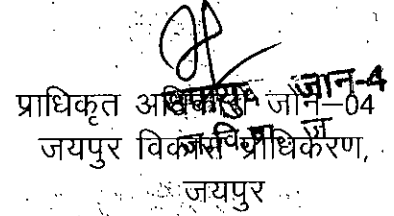 प्राधिकृत अधिकारी जोन–04
जयपुर विकास प्राधिकरण,
जयपुर